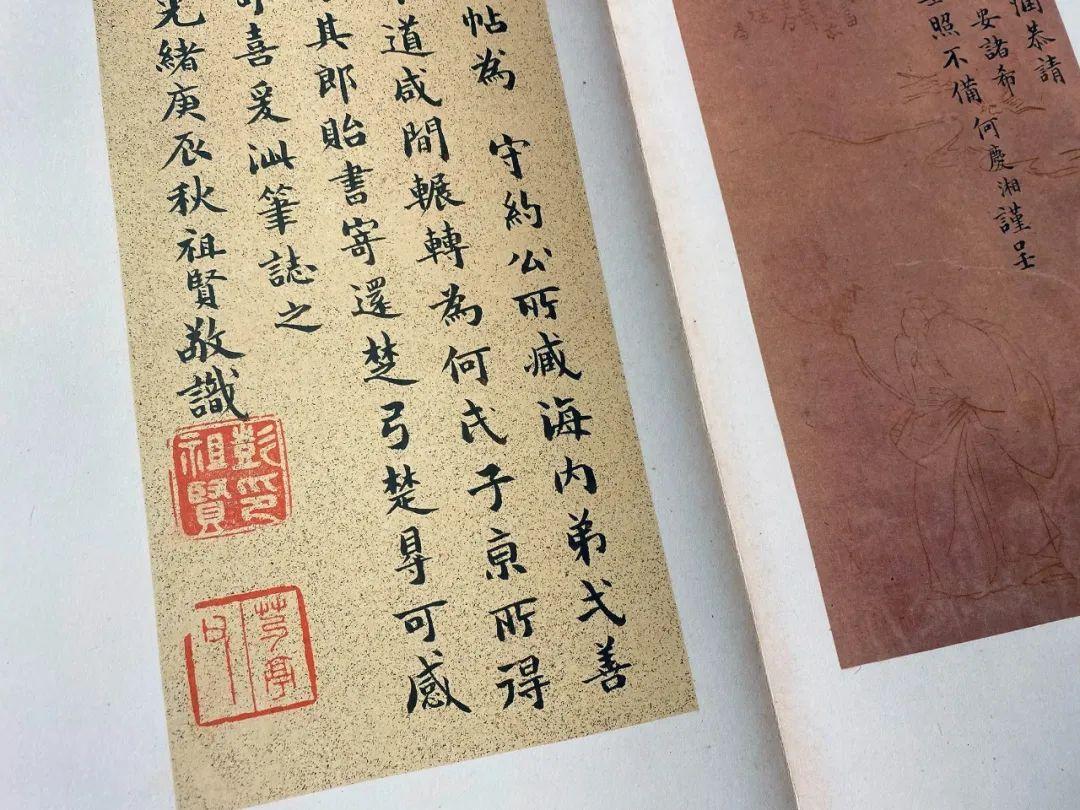 恭請
安諸希
照不備 何慶湘謹呈
帖為 守約公所臧海内弟弌善
道咸間輾轉為何氏子京所得
其郎貽書寄還楚弓楚㝵可感
喜爰泚筆誌之
光緒庚辰秋祖賢敬識
彭印
祖賢
芍亭